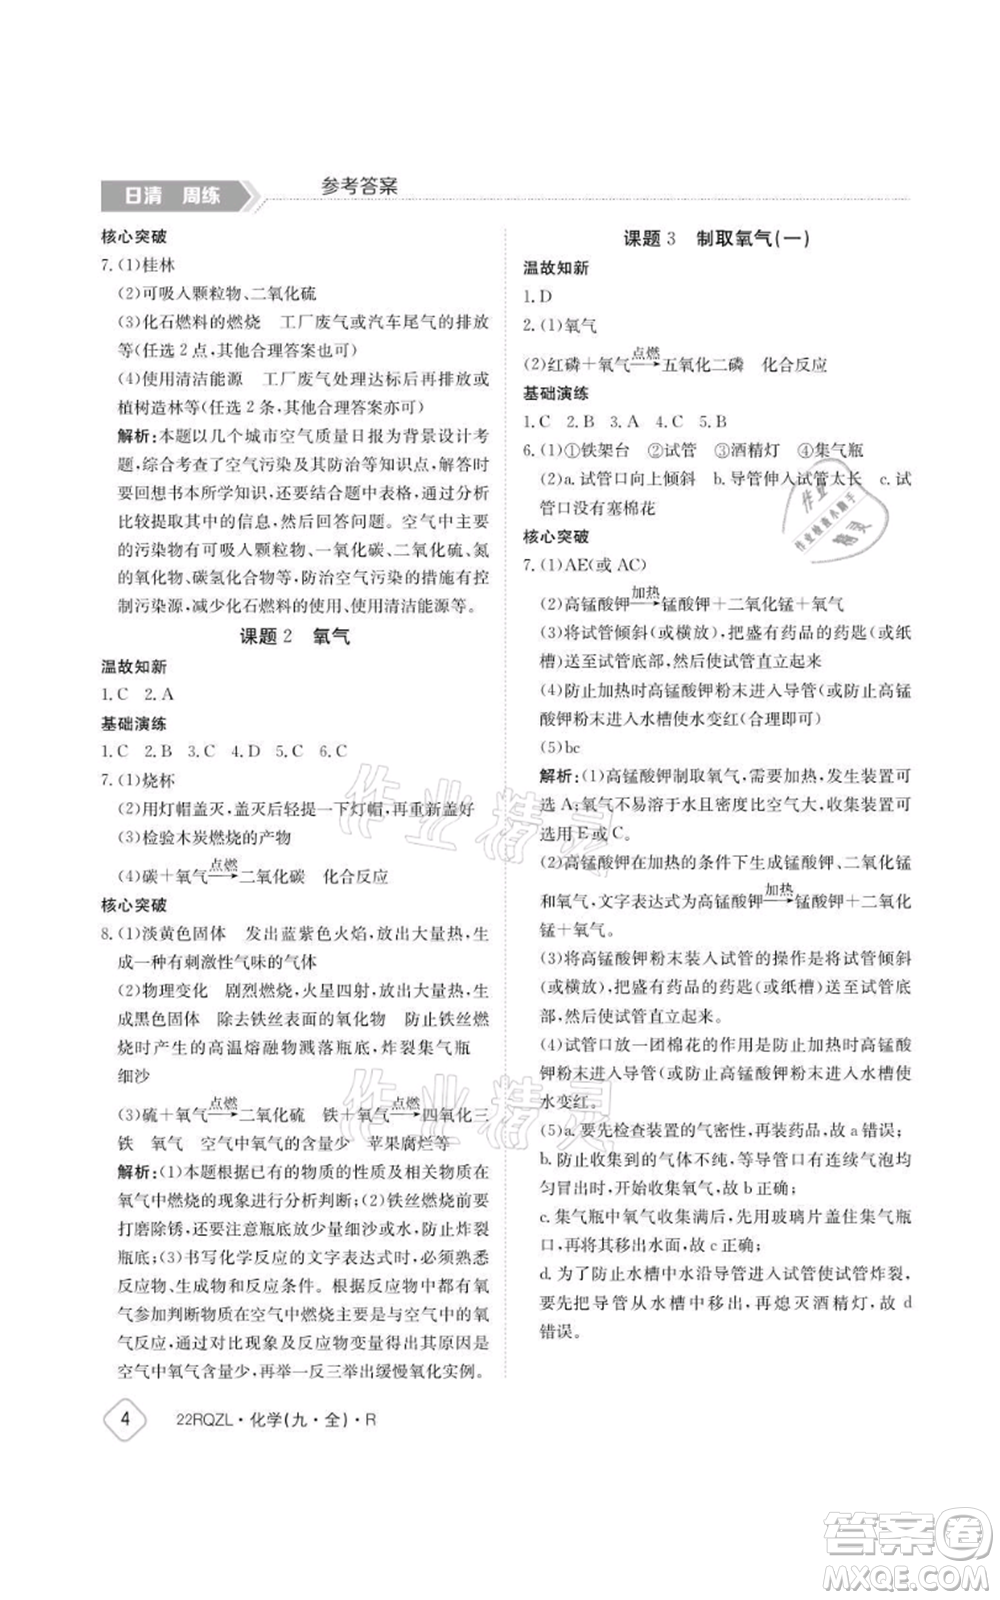 日清 周练
参考答案
核心突破
7.(1)桂林
(2)可吸入颗粒物、二氧化硫
(3)化石燃料的燃烧 工厂废气或汽车尾气的排放
等(任选2点,其他合理答案也可)
(4)使用清洁能源 工厂废气处理达标后再排放或
植树造林等(任选2条,其他合理答案亦可)
解析:本题以几个城市空气质量日报为背景设计考
题,综合考查了空气污染及其防治等知识点,同学们
要回想书本所学知识,还要结合题意,通过分析
比较提取其中的信息,然后回答问题。空气中主要
的污染物有可吸入颗粒物、一氧化碳、二氧化硫、氮
的氧化物、碳氢化合物等,防治空气污染的措施有控
制污染源,减少化石燃料的使用、使用清洁能源等。
课题2 氧气
温故知新
1.C 2.A
基础演练
1.C 2.B 3.C 4.D 5.C 6.C
7.(1)烧杯
(2)用灯帽盖灭,盖灭后轻提一下灯帽,再重新盖好
(3)检验木炭燃烧的产物
(4)碳+氧气 点燃→ 二氧化碳 化合反应
核心突破
8.(1)淡黄色固体 发出蓝紫色火焰,放出大量热,生
成一种有刺激性气味的气体
(2)物理变化 剧烈燃烧,火星四射,放出大量热,生
成黑色固体 除去铁丝表面的氧化物 防止铁丝燃
烧时产生的高温熔融物溅落瓶底,炸裂集气瓶
细沙
(3)硫+氧气 点燃→ 二氧化硫 铁+氧气 点燃→ 四氧化三
铁 氧气 空气中氧气的含量少 苹果腐烂等
解析:(1)本题根据已有的物质的性质及相关物质在
氧气中燃烧的现象进行分析判断;(2)铁丝燃烧前要
打磨除锈,还要注意瓶底放少量细沙或水,防止炸裂
瓶底;(3)书写化学反应的文字表达式时,必须熟悉
反应物、生成物和反应条件。根据反应中都有氧
气参加判断物质在空气中燃烧主要是与空气中的氧
气反应,通过对比现象的剧烈和反应物变量的原因是
空气中氧气含量少,再举一反三举出缓慢氧化实例。
课题3 制取氧气(一)
温故知新
1.D
2.(1)氧气
(2)红磷+氧气 点燃→ 五氧化二磷 化合反应
基础演练
1.C 2.B 3.A 4.C 5.B
6.(1)①铁架台 ②试管 ③酒精灯 ④集气瓶
(2)a.试管口向上倾斜 b.导管伸入试管太长 c.试
管口没有塞棉花
核心突破
7.(1)AE(或AC)
(2)高锰酸钾 加热→ 锰酸钾+二氧化锰+氧气
(3)将试管倾斜(或横放),把盛有药品的药匙(或纸
槽)送至试管底部,然后使试管直立起来
(4)防止加热时高锰酸钾粉末进入导管(或防止高锰
酸钾粉末进入水槽使水变红)(合理即可)
(5)bc
解析:(1)高锰酸钾制取氧气,需要加热,发生装置可
选A;氧气不易溶于水且密度比空气大,收集装置可
选用E或C。
(2)高锰酸钾在加热的条件下生成锰酸钾、二氧化锰
和氧气,文字表达式为高锰酸钾 加热→ 锰酸钾+二氧化
锰+氧气。
(3)将高锰酸钾粉末装入试管的操作是将试管倾斜
(或横放),把盛有药品的药匙(或纸槽)送至试管底
部,然后使试管直立起来。
(4)试管口放一团棉花的作用是防止加热时高锰酸
钾粉末进入导管,或防止高锰酸钾粉末进入水槽使
水变红。
(5)a.要先检查装置的气密性,再装药品,故a错误;
b.防止收集到的气体不纯,等导管口有连续气泡均
匀冒出时,开始收集氧气,故b正确;
c.集气瓶中氧气收集满后,要用玻璃片盖住集气瓶
口,再将其移出水面,故c正确;
d.为了防止水槽中水沿导管进入试管使试管炸裂,
要先把导管从水槽中移出,再熄灭酒精灯,故d
错误。
4
22RQZL·化学(九·全)·R
作业精灵
作业精灵
作业检查小助手
答案卷
MXQE.COM